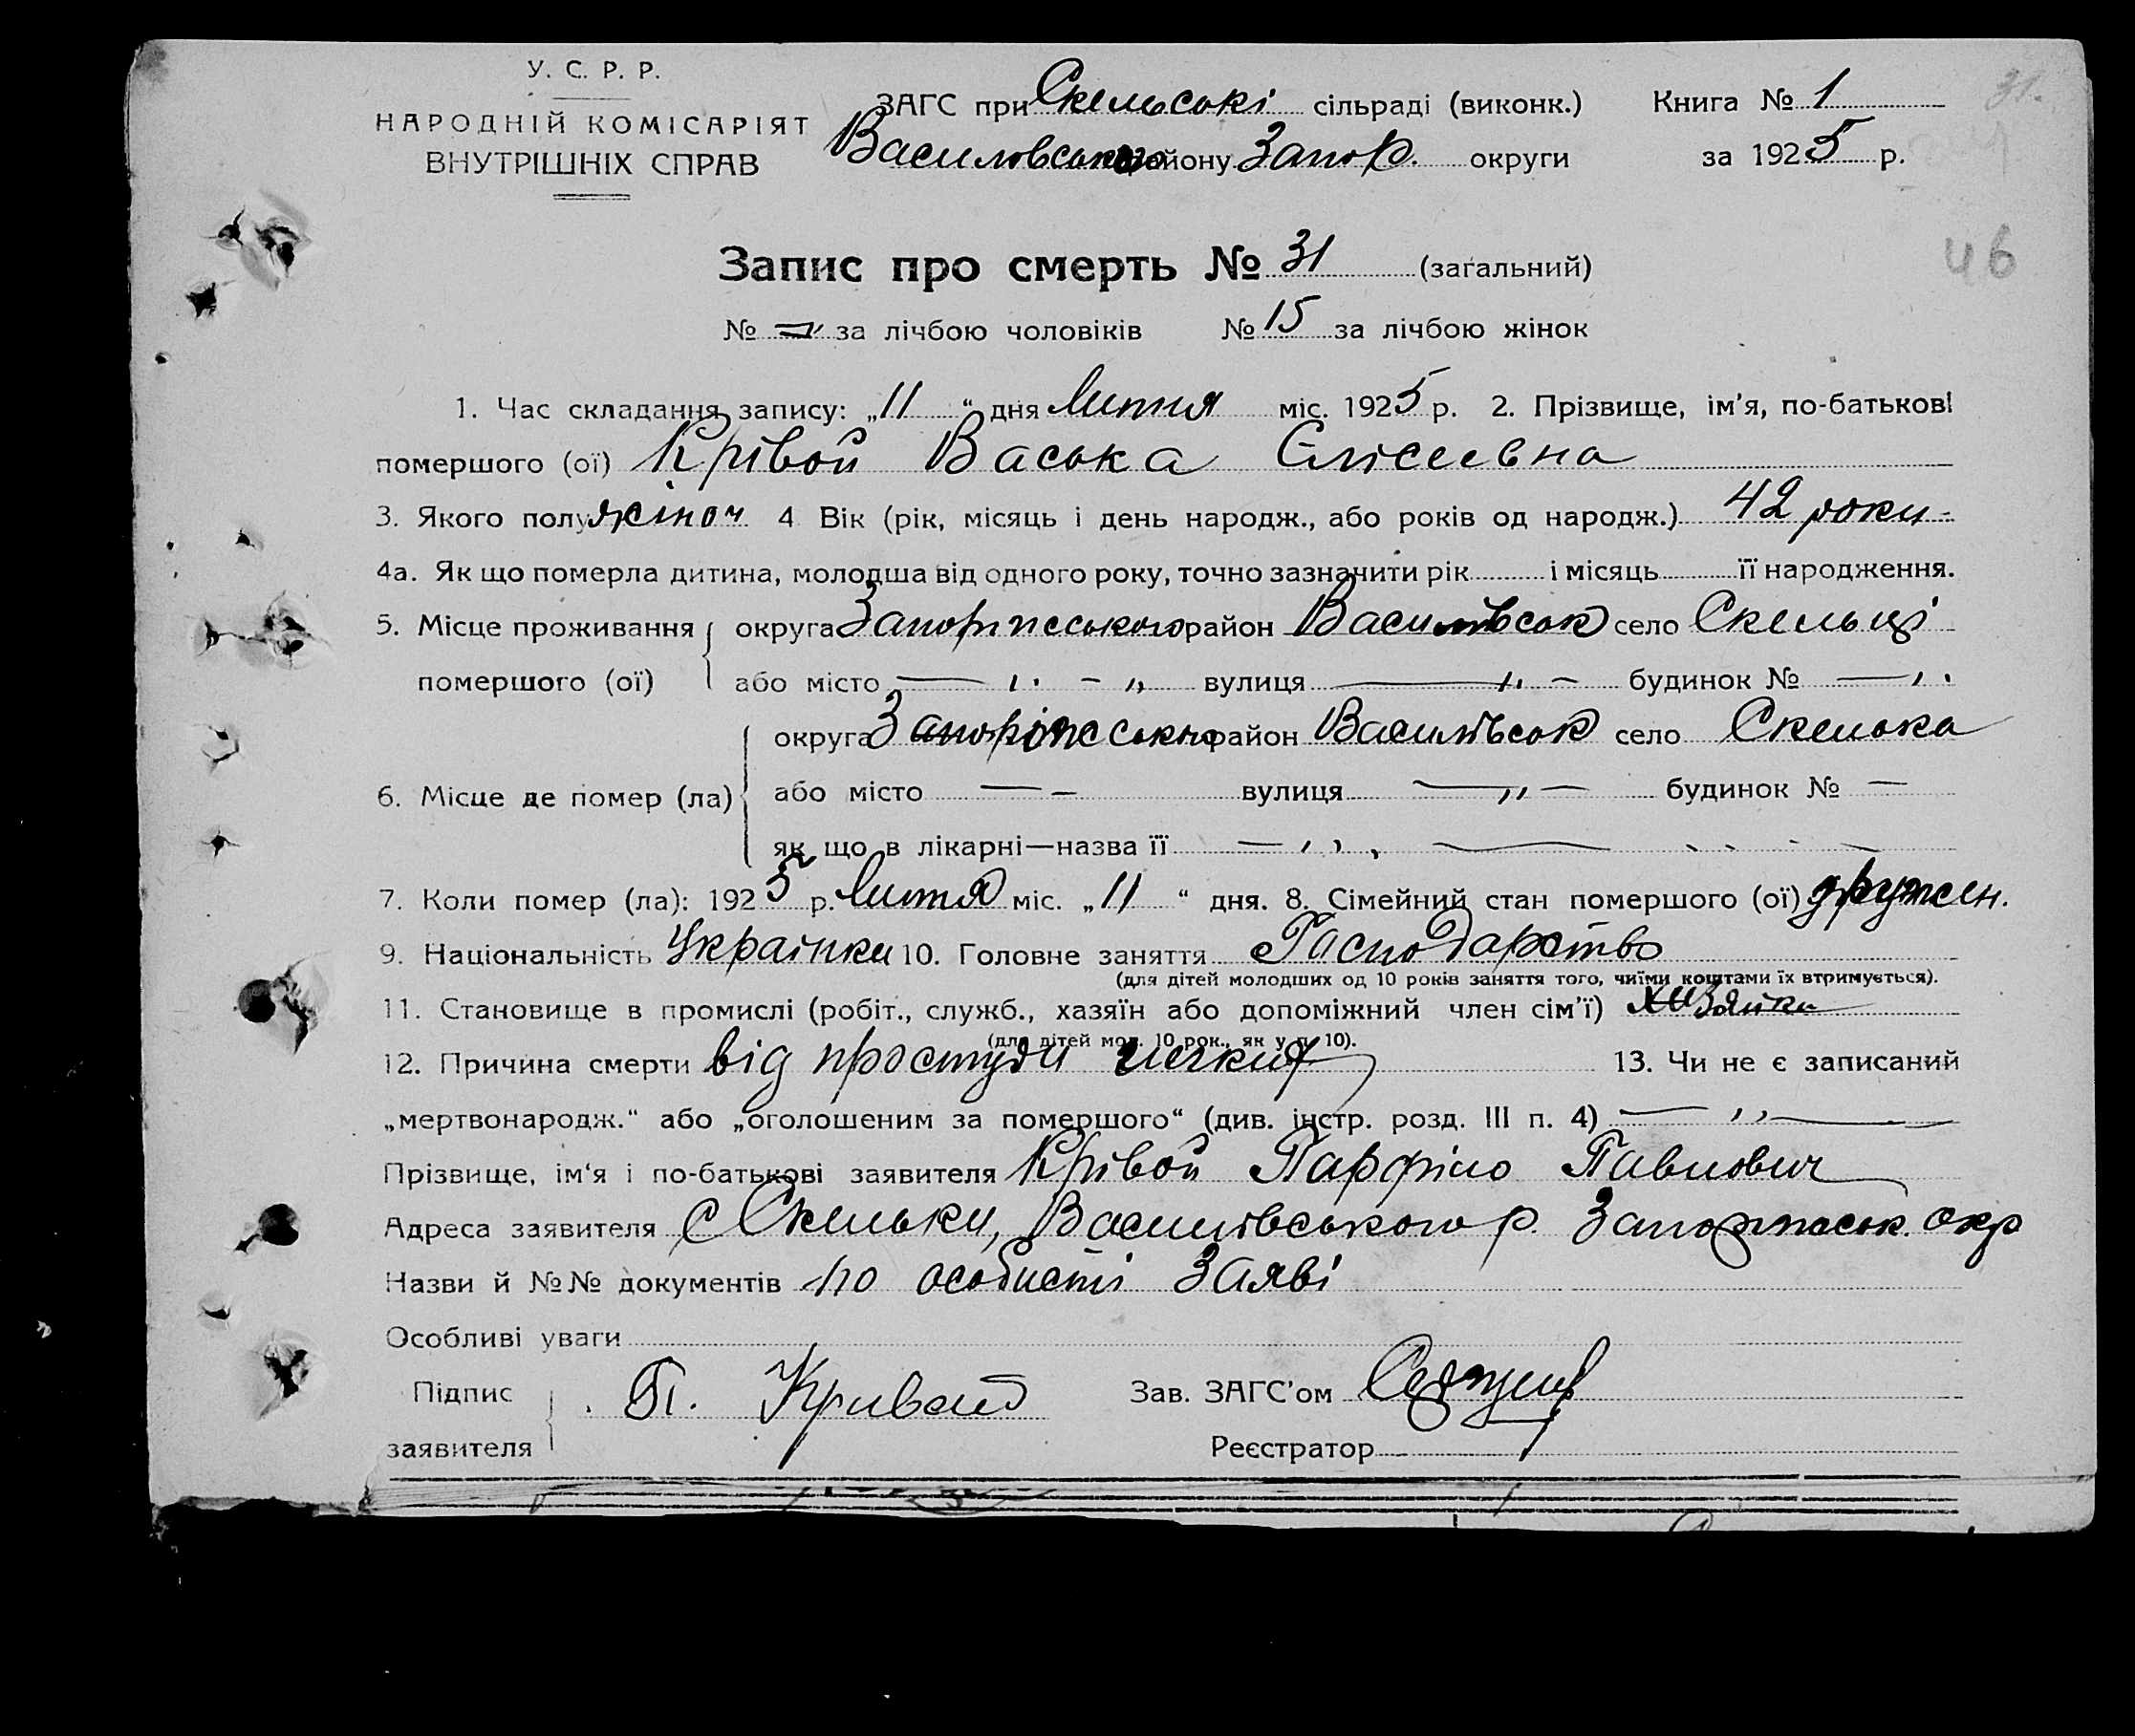 У. С. Р. Р.
НАРОДНІЙ КОМІСАРІЯТ
ВНУТРІШНІХ СПРАВ
ЗАГС при Скельскі сільраді (виконк.) Книга № 1
31.
Василівського району Запор. округи за 1925 р.
46
Запис про смерть № 31 (загальний)
№ за лічбою чоловіків № 15 за лічбою жінок
1. Час складання запису: „11“ дня Лютня міс. 1925 р. 2. Прізвище, ім'я, по-батькові
помершого (ої) Крівой Васька Єлісеевна
3. Якого полу жіноч 4 Вік (рік, місяць і день народж., або років од народж.) 42 роки
4а. Як що померла дитина, молодша від одного року, точно зазначити рік і місяць її народження.
5. Місце проживання округа Запоріжського район Василівськ село Скельці
помершого (ої) або місто — „ — „ вулиця — „ — будинок № — „
округа Запоріжського район Василівськ село Скелька
6. Місце де помер (ла) або місто — — вулиця — „ — будинок № —
як що в лікарні—назва її — „ —
7. Коли помер (ла): 1925 р. Лютня міс. „11“ дня. 8. Сімейний стан помершого (ої) дружен.
9. Національність Українки 10. Головне заняття Господарство
(для дітей молодших од 10 років заняття того, чиїми коштами їх втримується).
11. Становище в промислі (робіт., служб., хазяїн або допоміжний член сім'ї) хазяйка
(для дітей мол. 10 рок., як у п. 10).
12. Причина смерти від простуди легких 13. Чи не є записаний
„мертвонародж.“ або „оголошеним за помершого“ (див. інстр. розд. III п. 4) — „ —
Прізвище, ім'я і по-батькові заявителя Крівой Парфіло Павлович
Адреса заявителя с Скельки, Василівського р. Запоріжськ. окр
Назви й №№ документів по особисті Заяві
Особливі уваги
Підпис П. Кривой Зав. ЗАГС'ом
заявителя Реєстратор